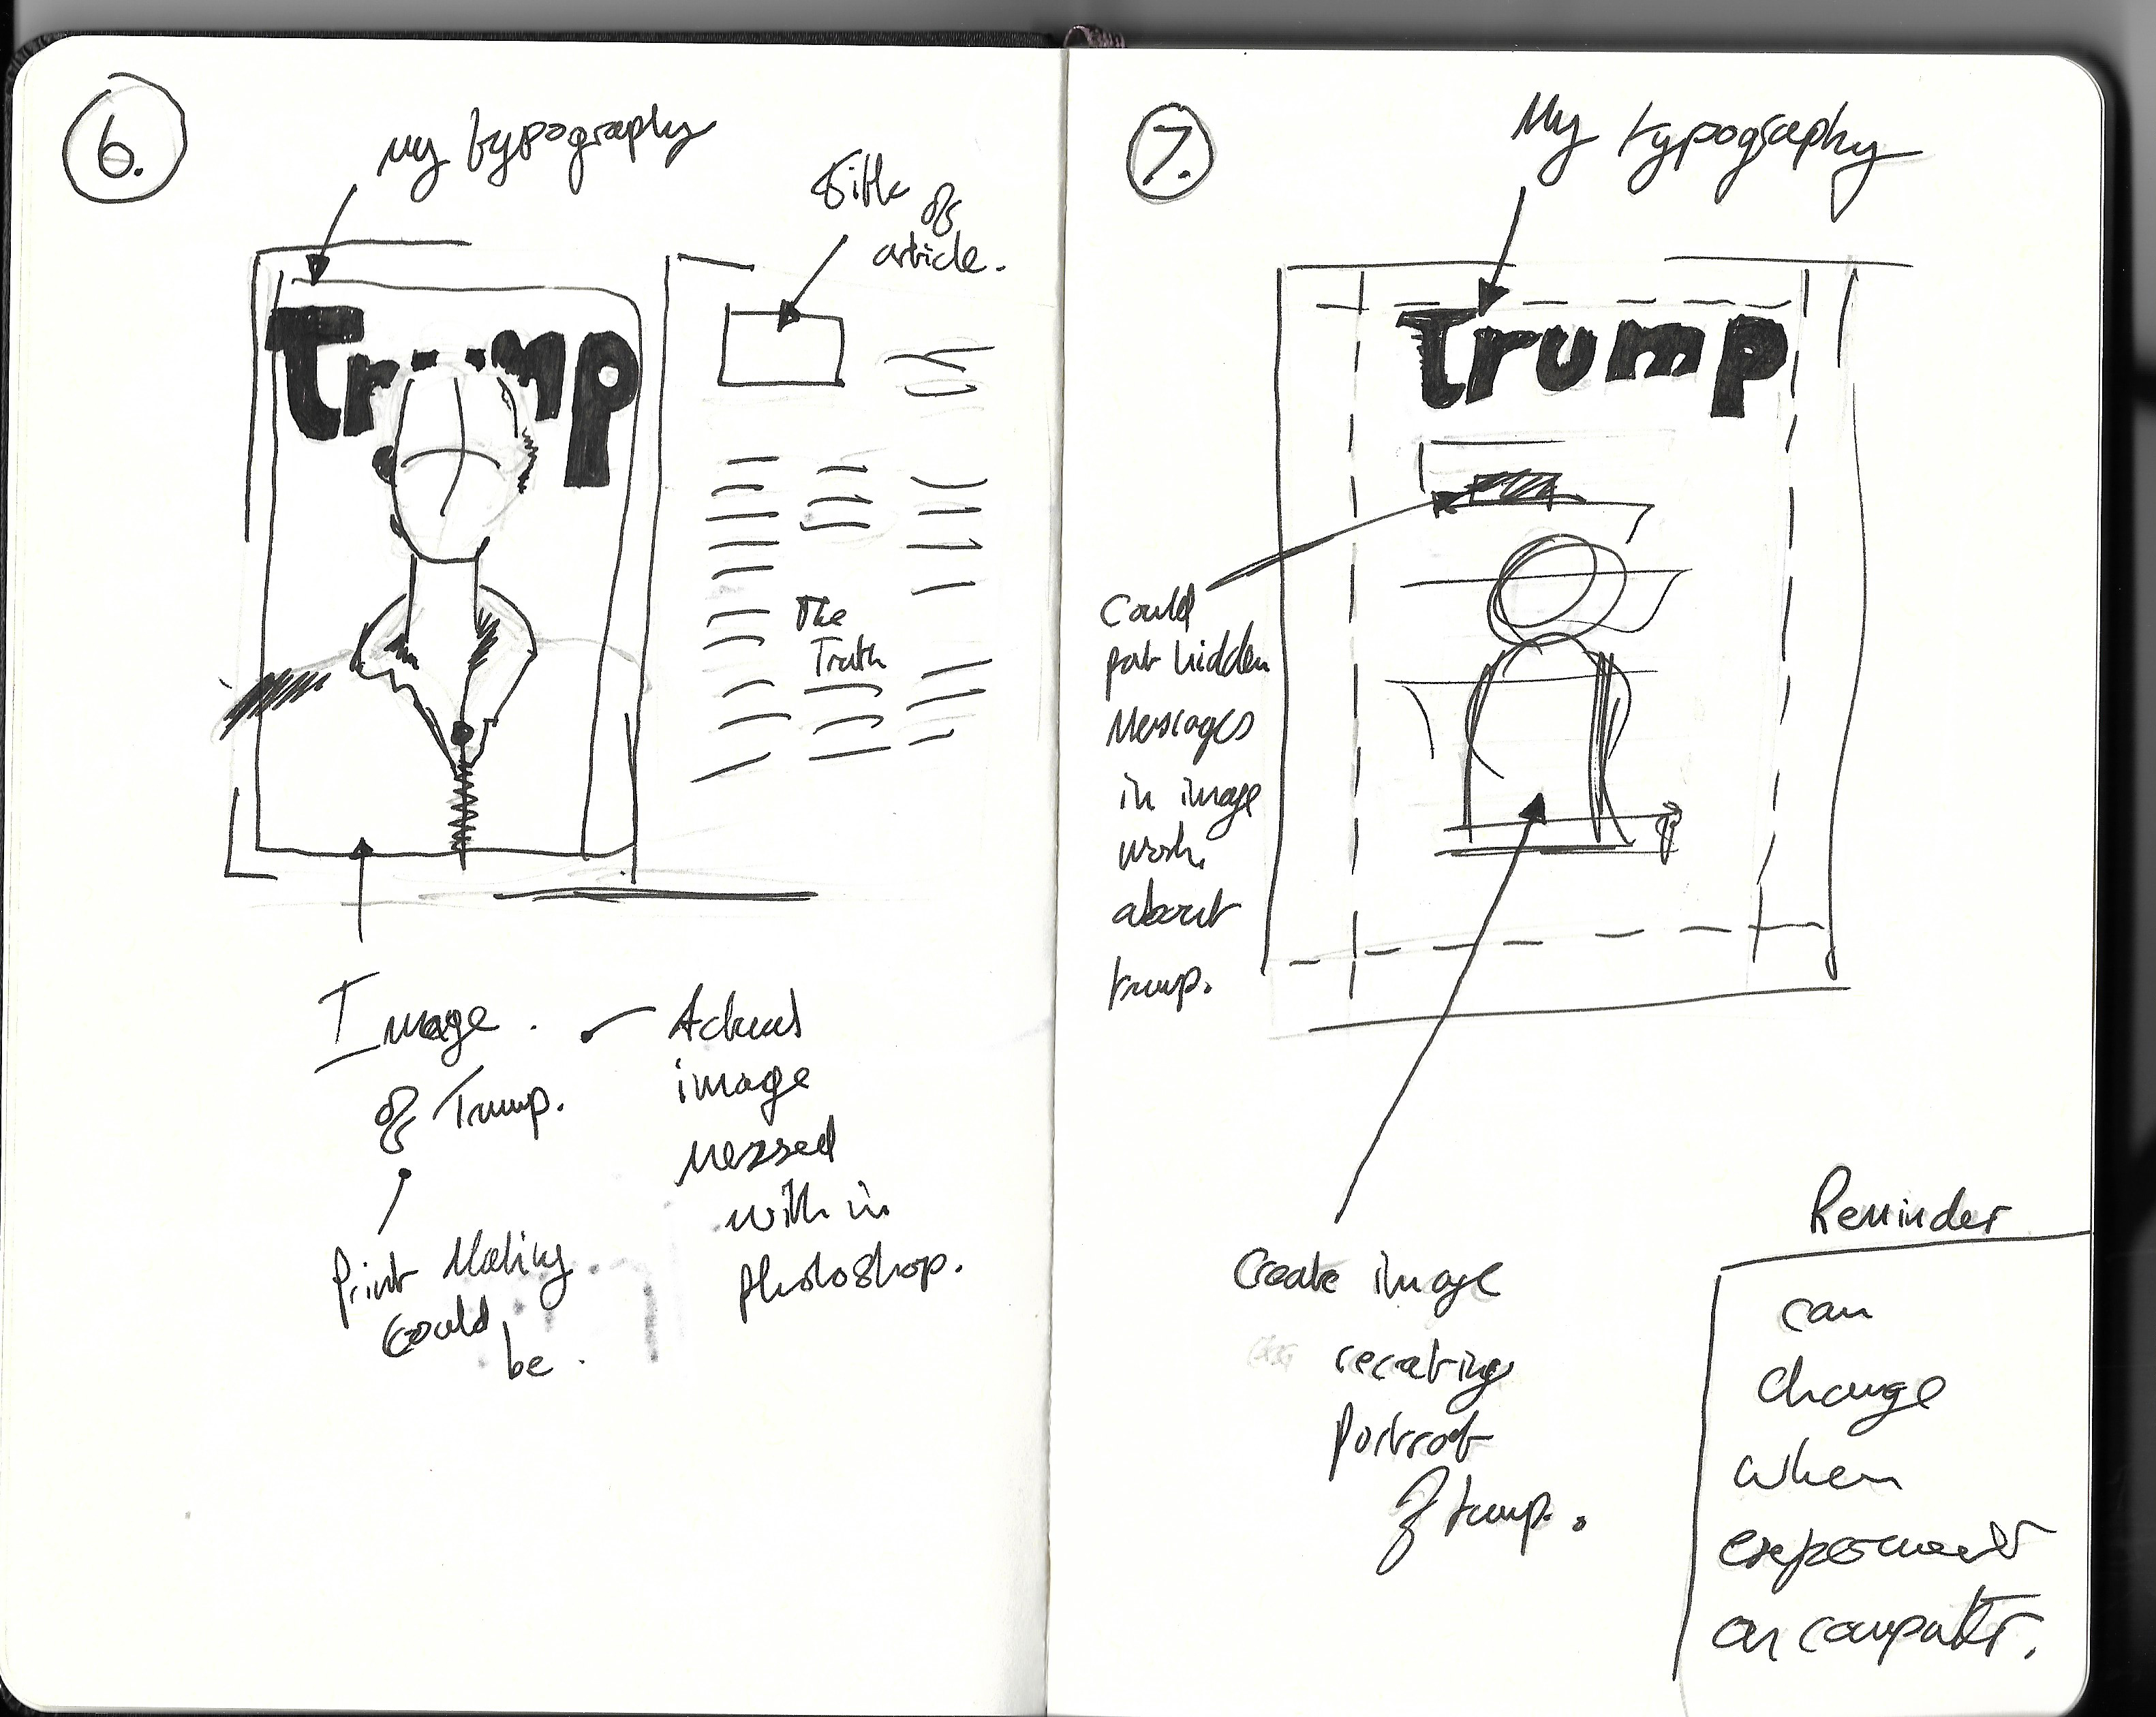 6.
my typography
Title of
article.
Trump
The
Truth
Image.
of Trump.
Actual
image
messed
with in
photoshop.
Print Making
could
be.
7.
My typography
Trump
Could
put hidden
Messages
in image
work.
about
trump.
Create image
recating
portrat
of trump.
Reminder
can
change
when
on computer.